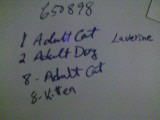 650898
1 Adult Cat Laverine
2 Adult Dog
8 - Adult Cat
8 - Kitten